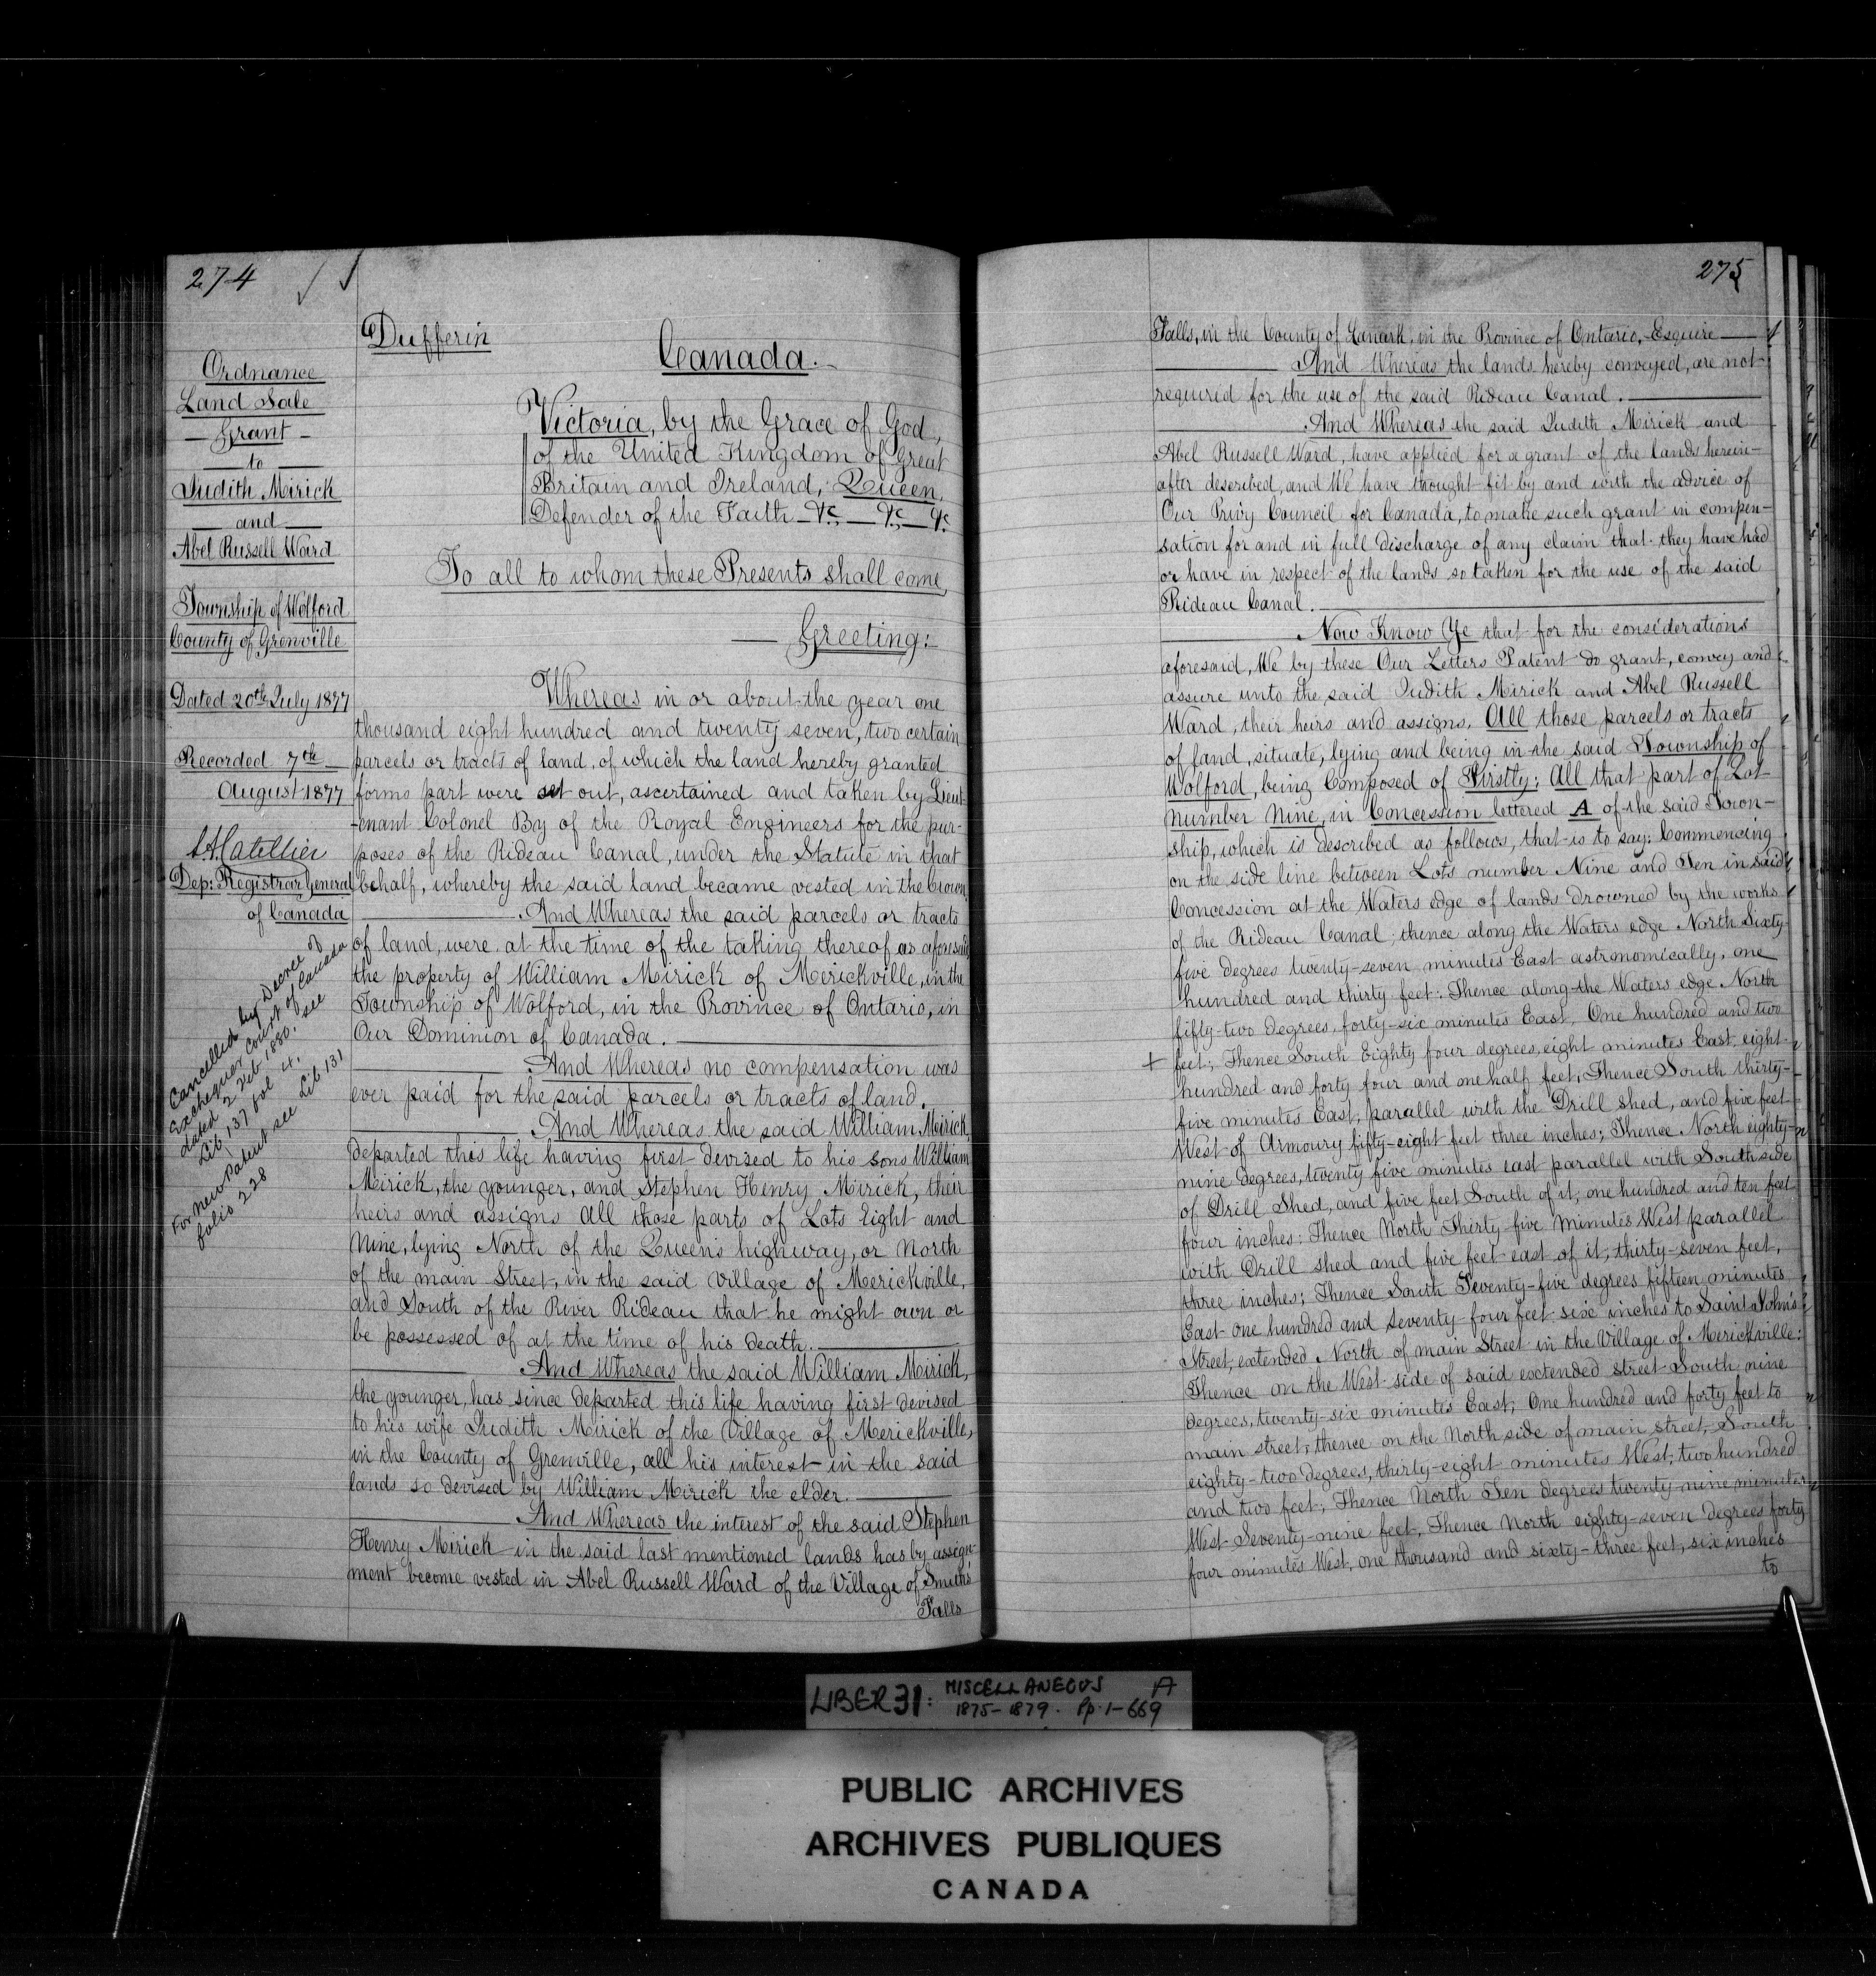 274
Ordnance
Land Sale
Grant
to
Judith Mirick
and
Abel Russell Ward
Township of Wolford
County of Grenville
Dated 20th July 1877
Recorded 7th
August 1877
Dep: Registrar General
of Canada
Cancelled by Decree of
Exchequer Court of Canada
dated 2 Feb 1880. see
Lib 137 fol 4.
For New Patent see Lib 131
folio 228
Dufferin
Canada.
Victoria, by the Grace of God,
of the United Kingdom of Great
Britain and Ireland, Queen,
Defender of the Faith &c. &c. &c.
To all to whom these Presents shall come,
Greeting:
Whereas in or about the year one
thousand eight hundred and twenty seven, two certain
parcels or tracts of land, of which the land hereby granted
forms part were set out, ascertained and taken by Lieut-
-enant Colonel By of the Royal Engineers for the pur-
poses of the Rideau Canal, under the Statute in that
behalf, whereby the said land became vested in the Crown
And Whereas the said parcels or tracts
of land, were at the time of the taking thereof as aforesaid,
the property of William Mirick of Merickville, in the
Township of Wolford, in the Province of Ontario, in
Our Dominion of Canada.
And Whereas no compensation was
ever paid for the said parcels or tracts of land.
And Whereas the said William Mirick,
departed this life having first devised to his sons William
Mirick, the younger, and Stephen Henry Mirick, their
heirs and assigns All those parts of Lots Eight and
Nine, lying North of the Queen's highway, or North
of the main Street, in the said Village of Merickville,
and South of the River Rideau that he might own or
be possessed of at the time of his death.
And Whereas the said William Mirick,
the younger, has since departed this life having first devised
to his wife Judith Mirick of the Village of Merickville,
in the County of Grenville, all his interest in the said
lands so devised by William Mirick the elder.
And Whereas the interest of the said Stephen
Henry Mirick in the said last mentioned lands has by assign-
ment become vested in Abel Russell Ward of the Village of Smith's
Falls
275
Falls, in the County of Lanark, in the Province of Ontario, Esquire
And Whereas the lands hereby conveyed, are not
required for the use of the said Rideau Canal.
And Whereas the said Judith Mirick and
Abel Russell Ward, have applied for a grant of the lands herein-
after described, and We have thought fit by and with the advice of
Our Privy Council for Canada, to make such grant in compen-
sation for and in full discharge of any claim that they have had
or have in respect of the lands so taken for the use of the said
Rideau Canal.
Now Know Ye that for the considerations
aforesaid, We by these Our Letters Patent do grant, convey and
assure unto the said Judith Mirick and Abel Russell
Ward, their heirs and assigns, All those parcels or tracts
of land, situate, lying and being in the said Township of
Wolford, being Composed of Firstly: All that part of Lot
Number Nine, in Concession lettered A of the said Town-
ship, which is described as follows, that is to say: Commencing
on the side line between Lots number Nine and Ten in said
Concession at the Waters edge of lands drowned by the works
of the Rideau Canal; thence along the Waters edge North Sixty-
five degrees twenty-seven minutes East astronomically, one
hundred and thirty feet: Thence along the Waters edge North
fifty-two degrees, forty-six minutes East, One hundred and two
+ feet; Thence South Eighty four degrees, eight minutes East, eight
hundred and forty four and one half feet, Thence South thirty-
five minutes East, parallel with the Drill shed, and five feet
West of Armoury fifty-eight feet three inches; Thence North eighty-
nine degrees, twenty five minutes east parallel with South side
of Drill Shed, and five feet South of it; one hundred and ten feet
four inches: Thence North Thirty five minutes West parallel
with Drill shed and five feet east of it, thirty-seven feet,
three inches; Thence South Seventy-five degrees fifteen minutes
East one hundred and seventy-four feet six inches to Saint John's
Street, extended North of main Street in the Village of Merickville:
Thence on the West side of said extended street South nine
degrees, twenty-six minutes East; One hundred and forty feet to
main street; thence on the North side of main street, South
eighty-two degrees, thirty-eight minutes West, two hundred
and two feet; Thence North Ten degrees twenty-nine minutes
West Seventy-nine feet, Thence North eighty-seven degrees forty
four minutes West, one thousand and sixty-three feet, six inches
to
LIBER 31: MISCELLANEOUS A
1875-1879. Pp. 1-669
PUBLIC ARCHIVES
ARCHIVES PUBLIQUES
CANADA